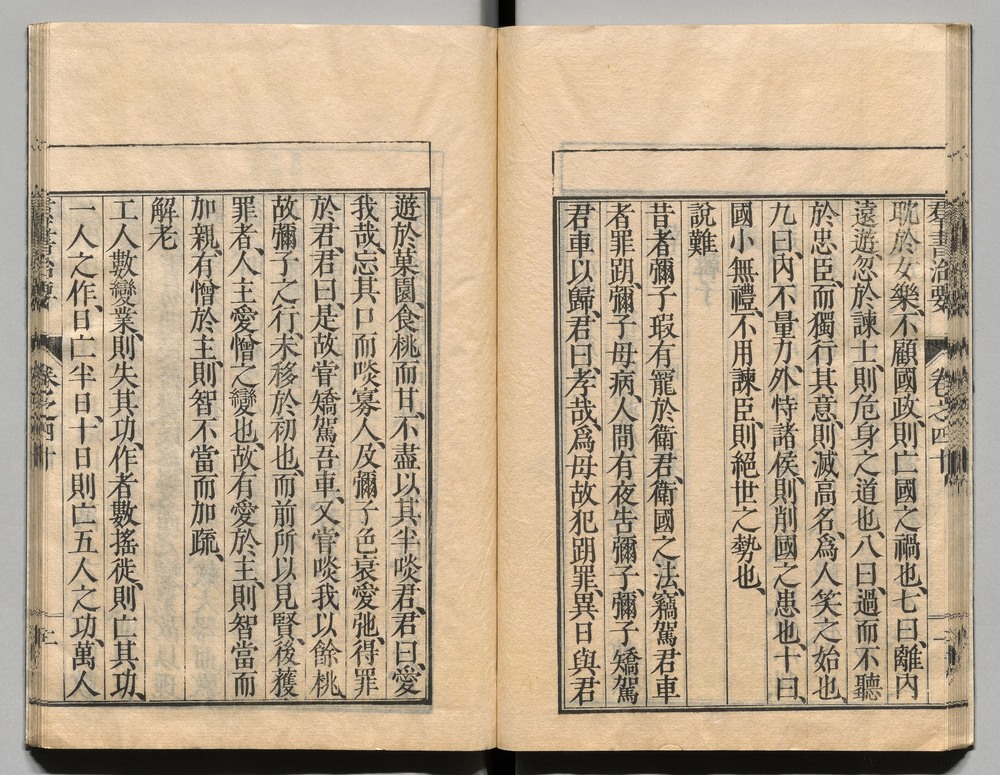 群書治要 卷之四十 一
耽於女樂、不顧國政、則亡國之禍也、七曰、離內
遠遊、忽於諫士、則危身之道也、八曰、過而不聽
於忠臣、而獨行其意、則滅高名、爲人笑之始也、
九曰、內不量力、外恃諸侯、則削國之患也、十曰、
國小無禮、不用諫臣、則絕世之勢也、
說難
昔者彌子瑕有寵於衛君、衛國之法、竊駕君車
者罪跀、彌子母病、人間有夜告彌子、彌子矯駕
君車以歸、君曰、孝哉、爲母故犯跀罪、異日與君
遊於菓園、食桃而甘、不盡以其半啖君、君曰、愛
我哉、忘其口而啖寡人、及彌子色衰愛弛、得罪
於君、君曰、是故嘗矯駕吾車、又嘗啖我以餘桃、
故彌子之行、未移於初也、而前所以見賢、後獲
罪者、人主愛憎之變也、故有愛於主、則智當而
加親、有憎於主、則智不當而加疏、
解老
工人數變業、則失其功、作者數搖徙、則亡其功、
一人之作、日亡半日、十日則亡五人之功、萬人
群書治要 卷之四十 二